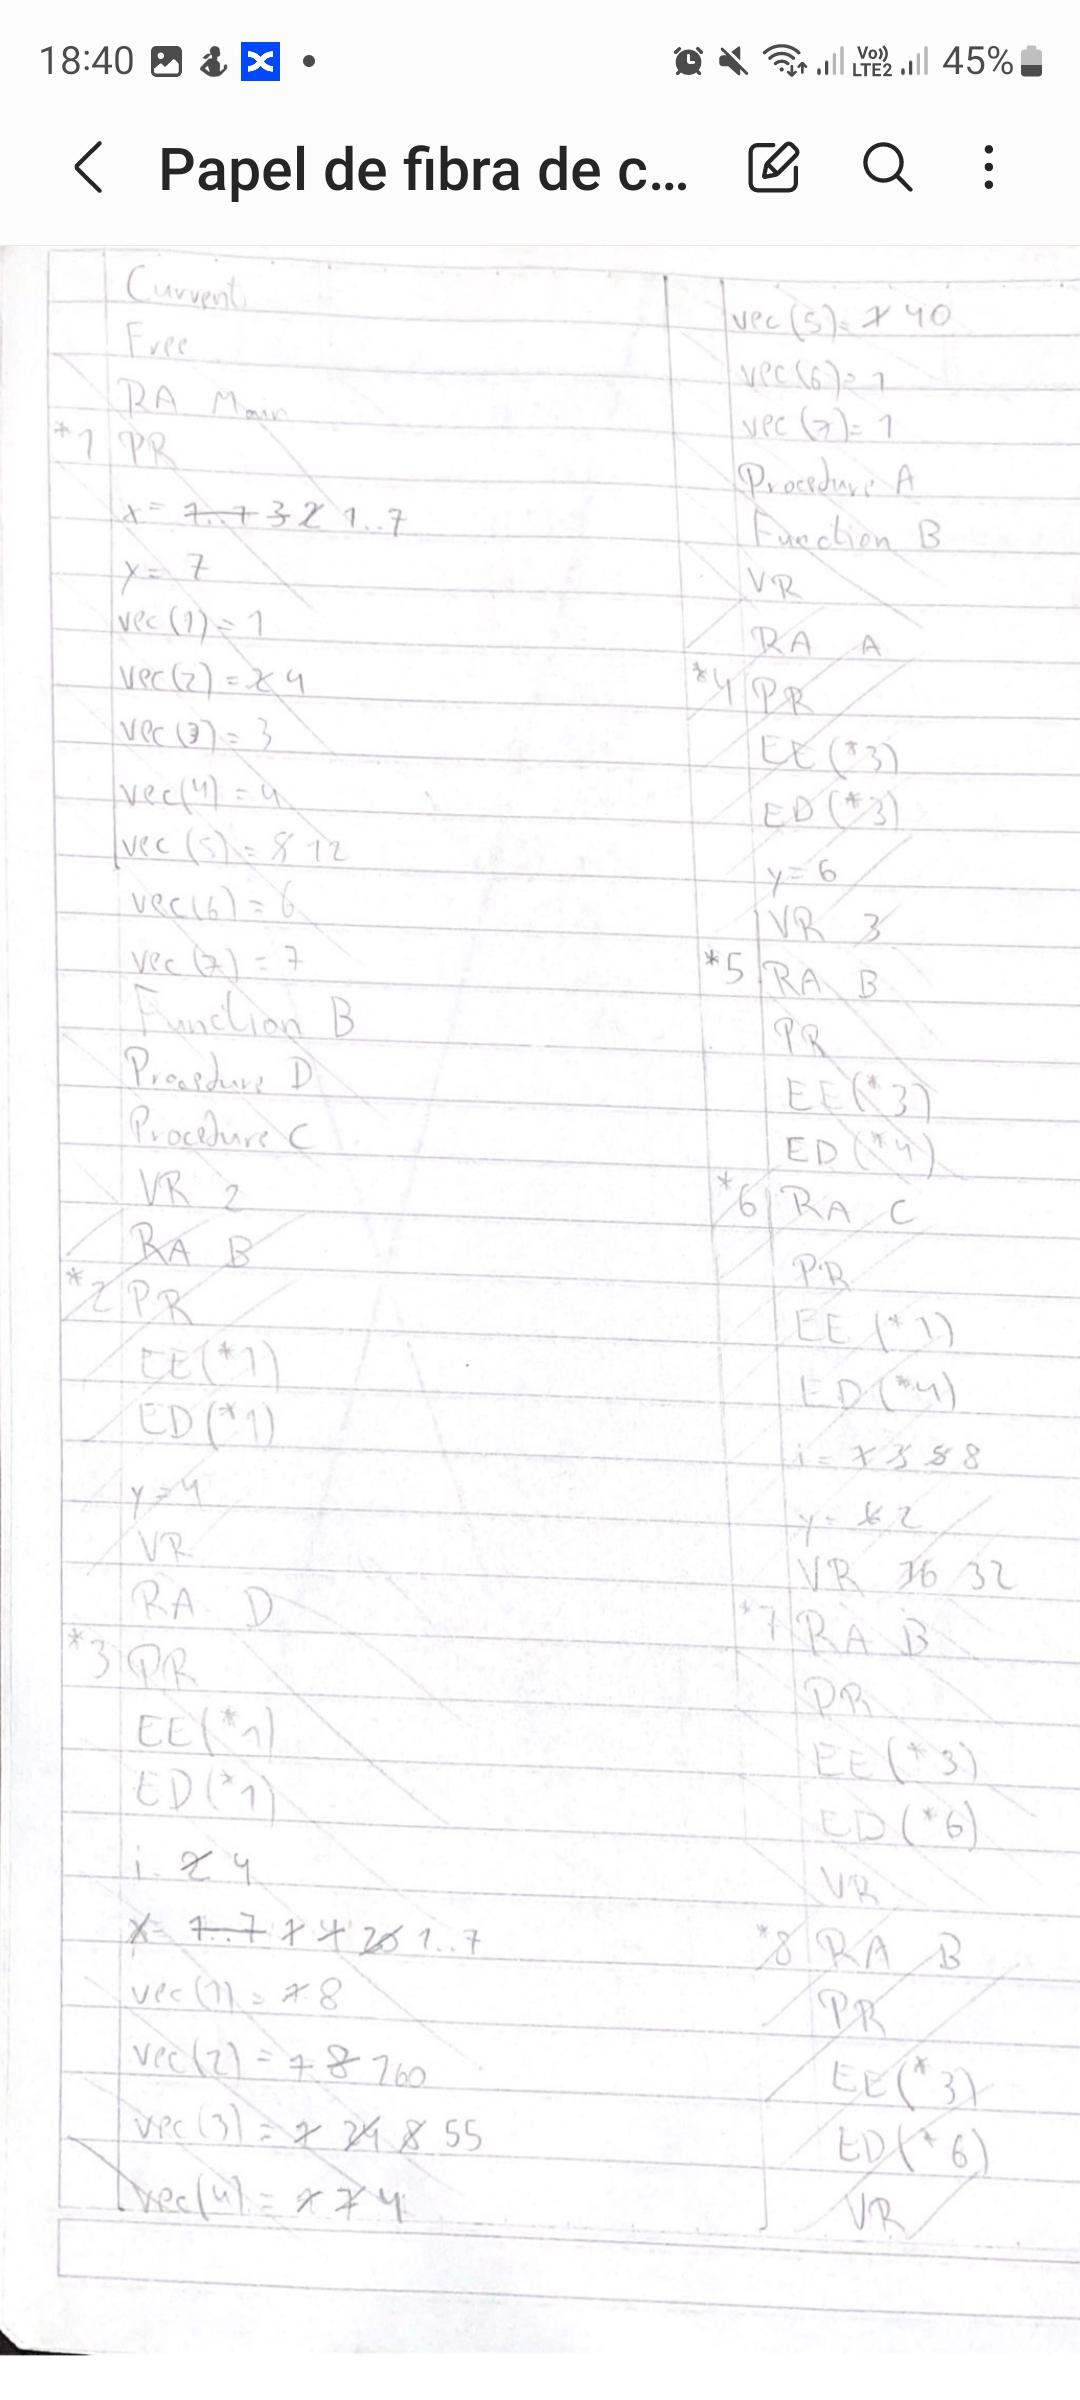 18:40
Vo))
LTE2
45%
Papel de fibra de c...
Current
Free
RA Main
*1 PR
x= 1..7 3 2 1..7
y= 7
vec(1)=1
vec(2)=2 4
vec(3)=3
vec(4)=4
vec(5)=8 12
vec(6)=6
vec(7)=7
Function B
Procedure D
Procedure C
VR 2
RA B
*2 PR
EE(*1)
ED(*1)
y=4
VR
RA D
*3 PR
EE(*1)
ED(*1)
i= 2 4
x= 1..7 1..7
vec(1)= 8
vec(2)= 8 160
vec(3)= 24 8 55
vec(4)= 7 4
vec(5)= 40
vec(6)=1
vec(7)=1
Procedure A
Function B
VR
RA A
*4 PR
EE(*3)
ED(*3)
y=6
VR 3
*5 RA B
PR
EE(*3)
ED(*4)
*6 RA C
PR
EE(*1)
ED(*4)
i= 8
y= 2
VR 16 32
*7 RA B
PR
EE(*3)
ED(*6)
VR
*8 RA B
PR
EE(*3)
ED(*6)
VR